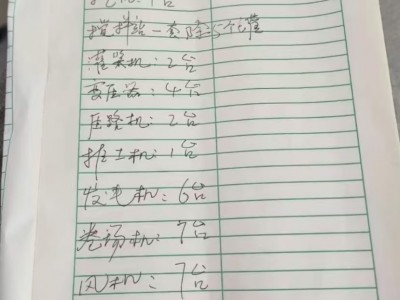 搅拌站一套除5个罐
灌浆机：2台
变压器：4台
压路机：2台
推土机：1台
发电机：6台
卷扬机：7台
风机：7台